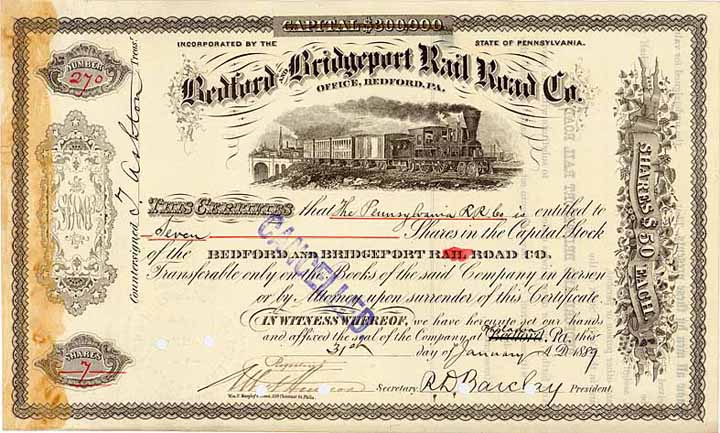 CAPITAL $300,000.
INCORPORATED BY THE STATE OF PENNSYLVANIA.
NUMBER
270
Bedford and Bridgeport Rail Road Co.
OFFICE, BEDFORD, PA.
Countersigned T. Ashton Treasr.
SHARES $50 EACH
THIS CERTIFIES that The Pennsylvania R R Co is entitled to
Seven Shares in the Capital Stock
of the BEDFORD AND BRIDGEPORT RAIL ROAD CO.
Transferable only on the Books of the said Company in person
or by Attorney upon surrender of this Certificate.
CANCELLED
IN WITNESS WHEREOF, we have hereunto set our hands
and affixed the seal of the Company at Bedford, Pa. this
31st day of January A.D. 1889
SHARES
7
Secretary. R D Barclay President.